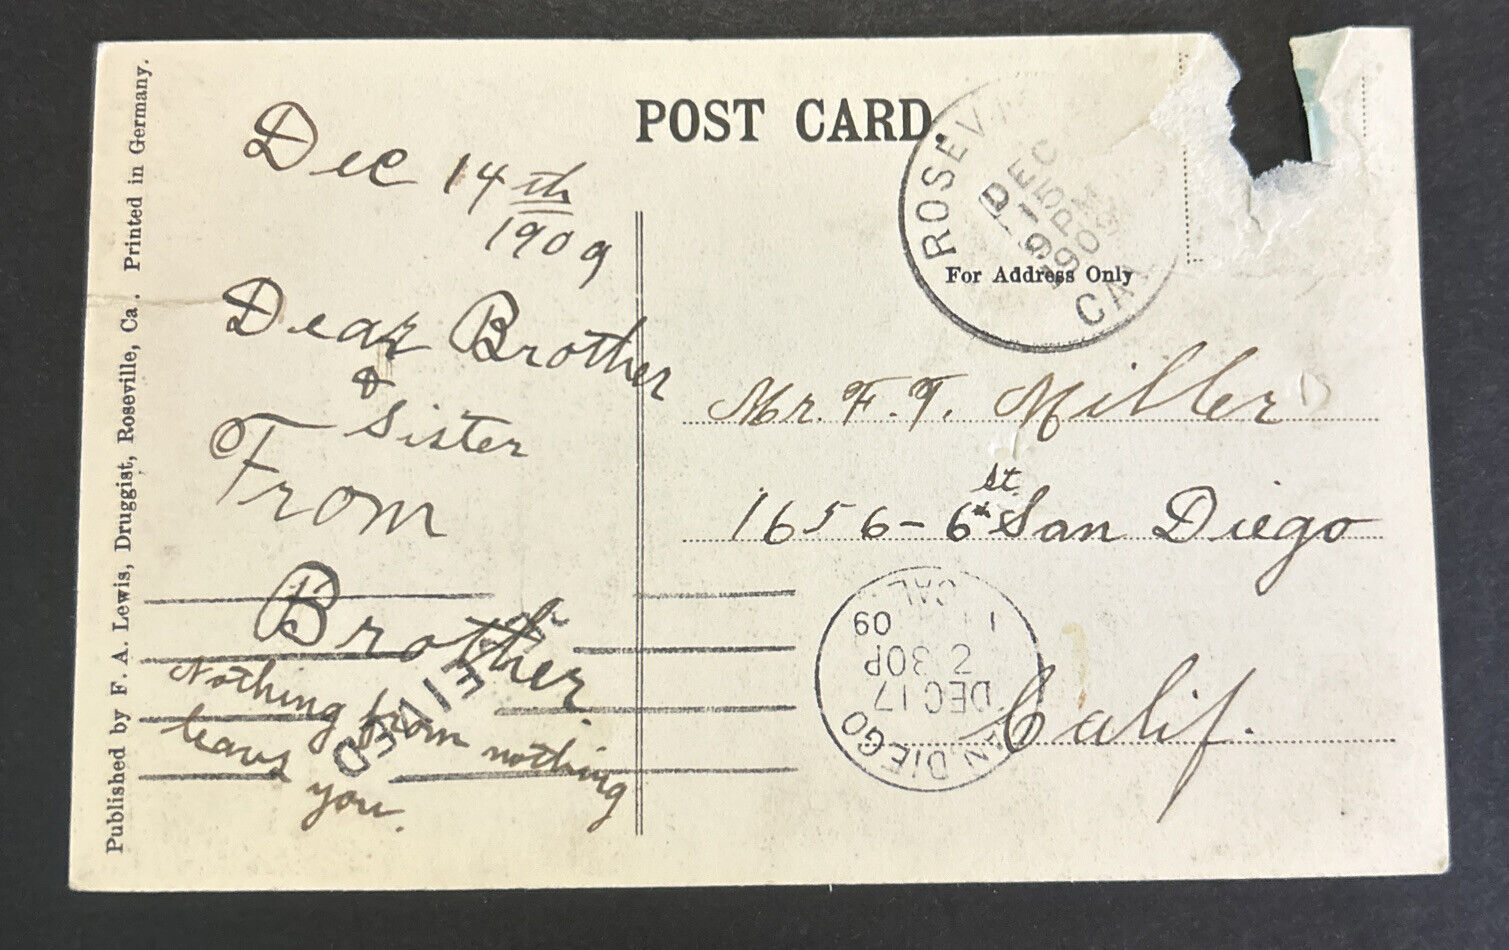 POST CARD.
Dec 14th
1909
Dear Brother
& Sister
From
Brother.
Nothing from nothing
leavs you.
For Address Only
Mr. F. T. Miller
1656 - 6th St. San Diego
Calif.
DEC
15
9 PM
1909
CAL
SAN DIEGO
DEC 17
2 30P
09
CAL
Published by F. A. Lewis, Druggist, Roseville, Ca. Printed in Germany.